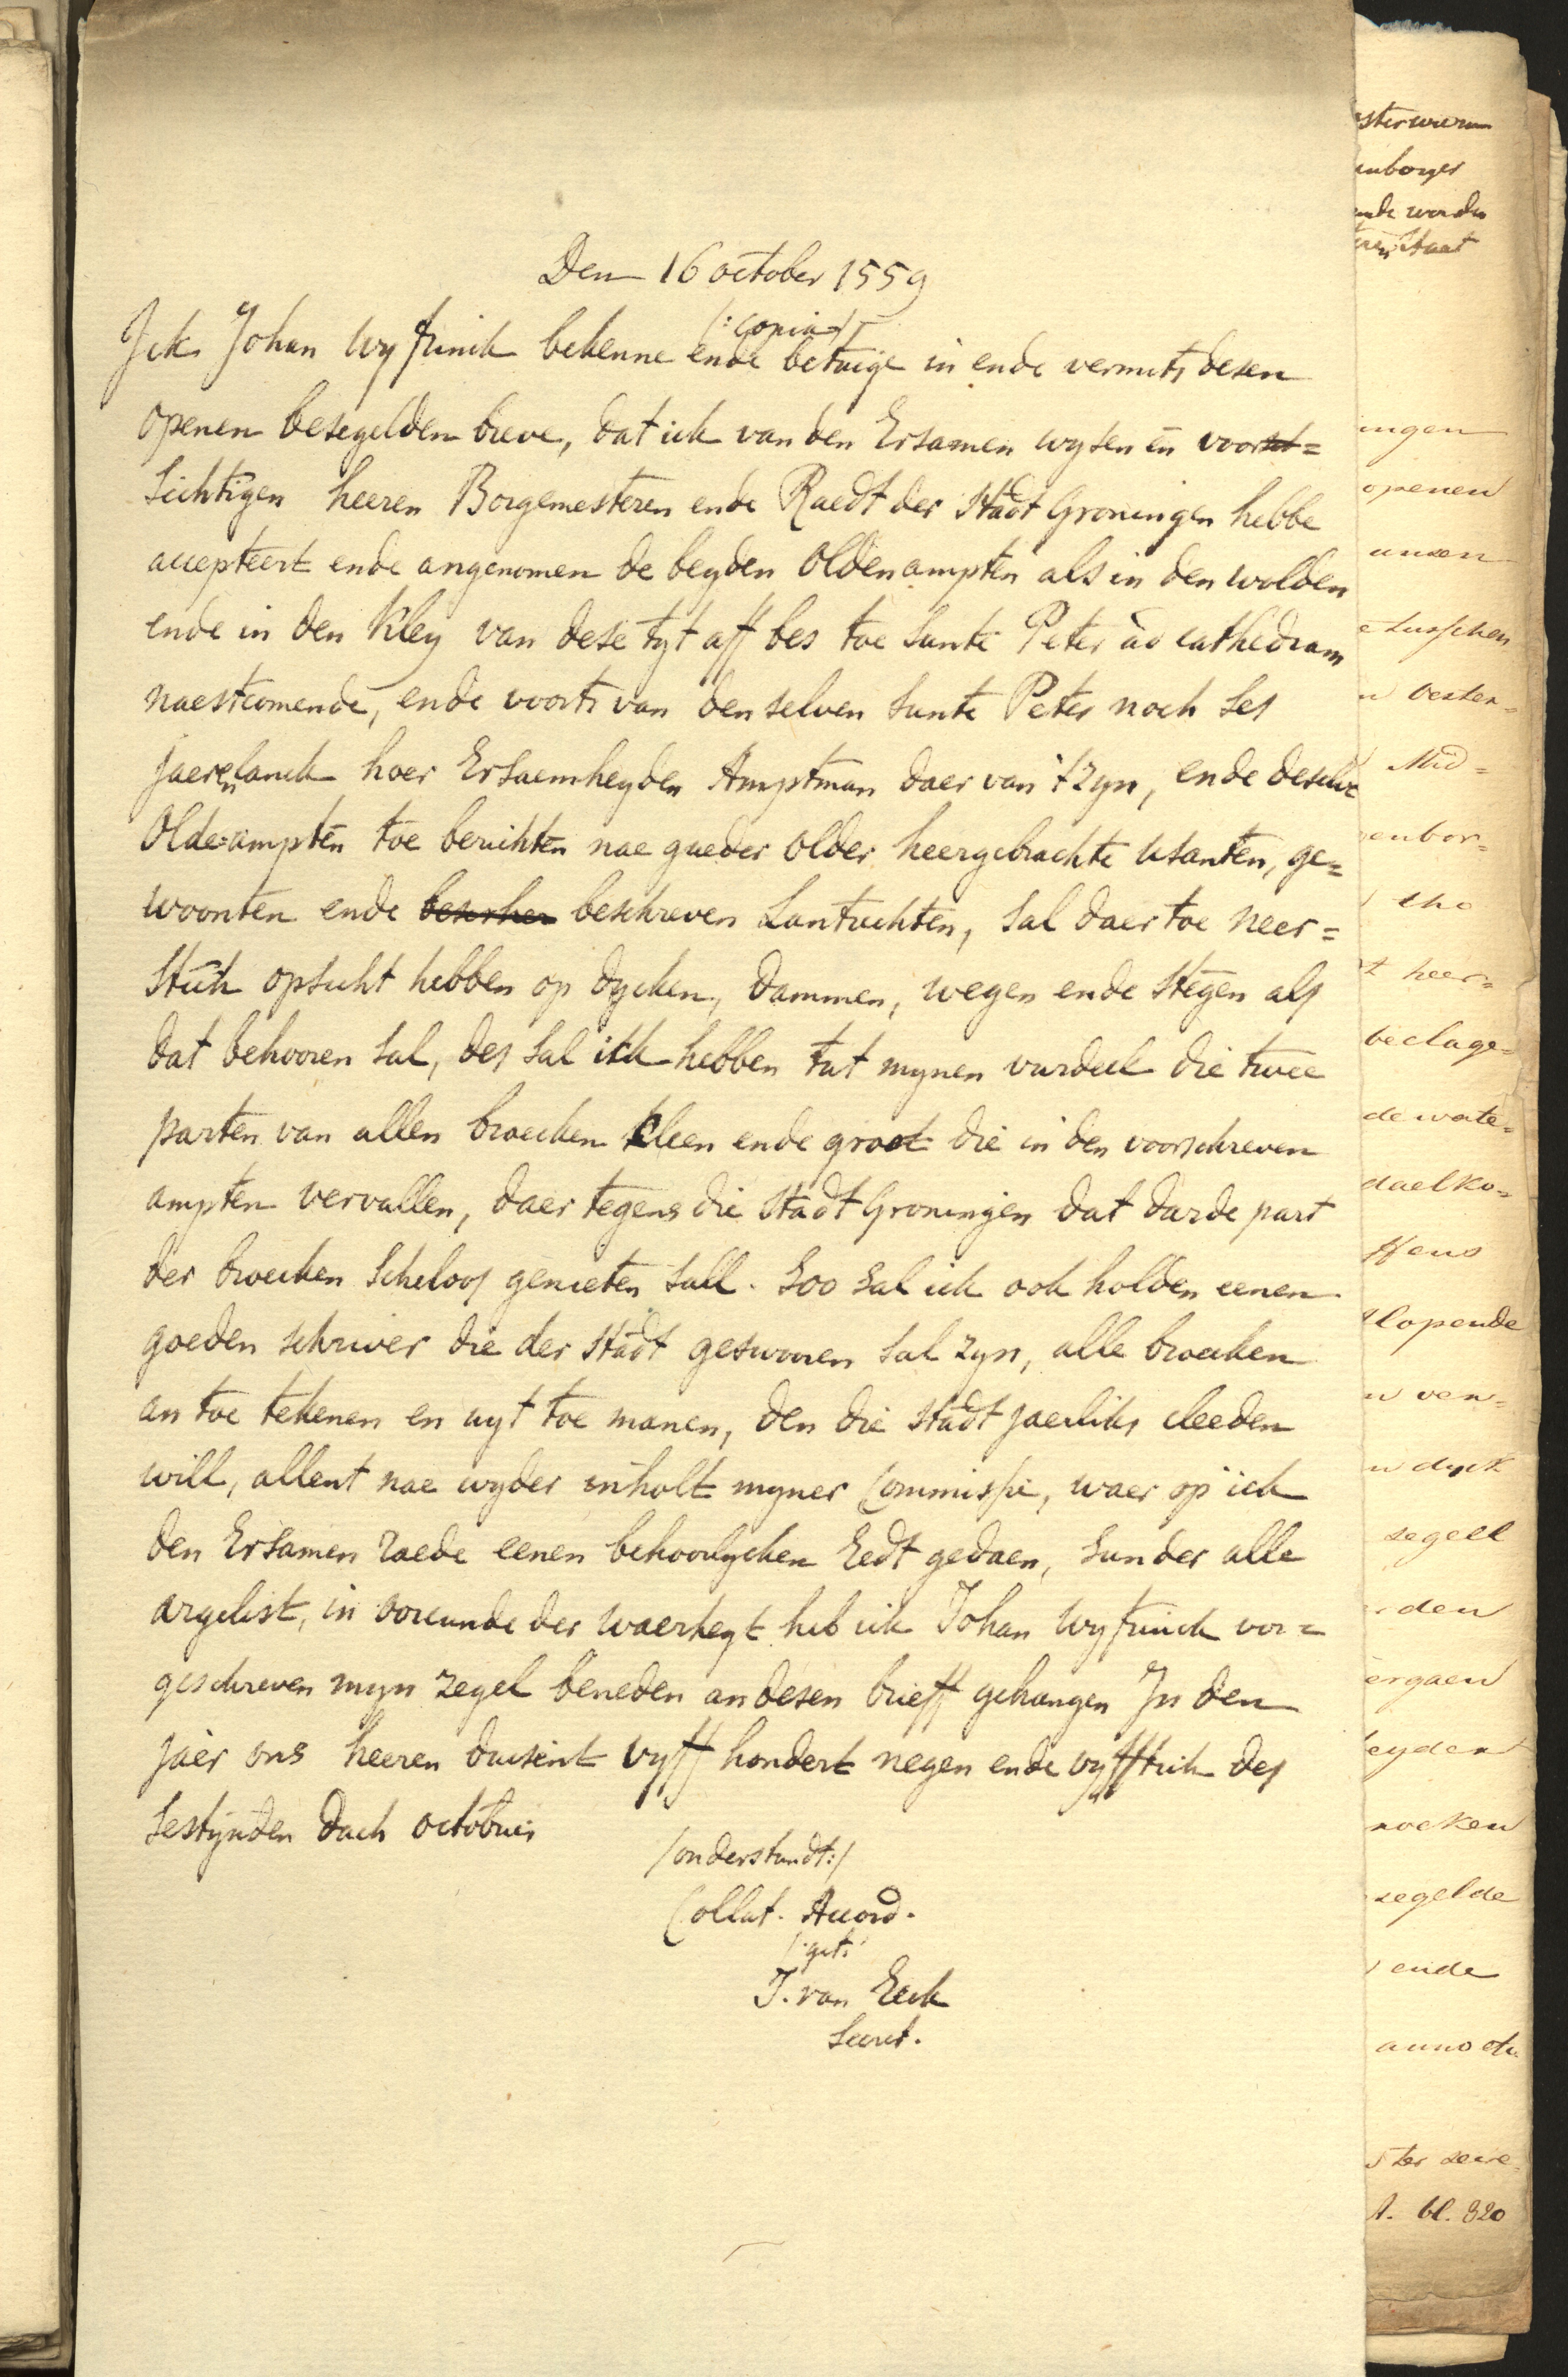 Den 16 october 1559
/: Copia :/
Ick Johan Wyfrinck bekenne ende betuige in ende vermits desen
openen besegelden breve, dat ick van den Ersamen wysen en voor=
sichtigen heeren Borgemesteren ende Raedt der Stadt Groningen hebbe
accepteert ende angenomen de beyden Oldenampten als in den wolden
ende in den Kley van dese tyt aff bes toe Sunte Peter ad cathedram
naestcomende, ende voorts van den selven Sunte Peter noch ses
jaeren lanck hoer Ersaemheyden Amptman daer van t zyn, ende deselve
Olde-ampten toe berichten nae gueder older heergebrachte usanten, ge=
woonten ende beschreven Lantrechten, sal daer toe neer=
stich opsicht hebben op dycken, dammen, wegen ende stegen als
dat behooren sal, des sal ick hebben tut mynen vurdeel die twee
parten van allen broecken kleen ende groot die in den voorschreven
ampten vervallen, daer tegens die Stadt Groningen dat darde part
der broecken scheloos genieten sall. Soo sal ick ook holden eenen
goeden schriver die der Stadt geswooren sal zyn, alle broecken
an toe tekenen en uyt toe manen, den die Stadt jaerlicks cleeden
will, allent nae wyder inholt myner Commissie, waer op ick
den Ersamen raede eenen behoorlycken Eedt gedaen, sunder alle
argelist, in oorcunde der waerheyt heb ick Johan Wyfrinck vor=
geschreven myn zegel beneden an desen brieff gehangen In den
jaer ons heeren dusent vyff hondert negen ende vyfftich des
sestynden dach octobris
/onderstundt:/
Collat. Accord.
/: get:
J. van Eeck
Secret.
openen
tusschen
beclage=
lopende
dyck
segell
segelde
ende
anno
bl. 320